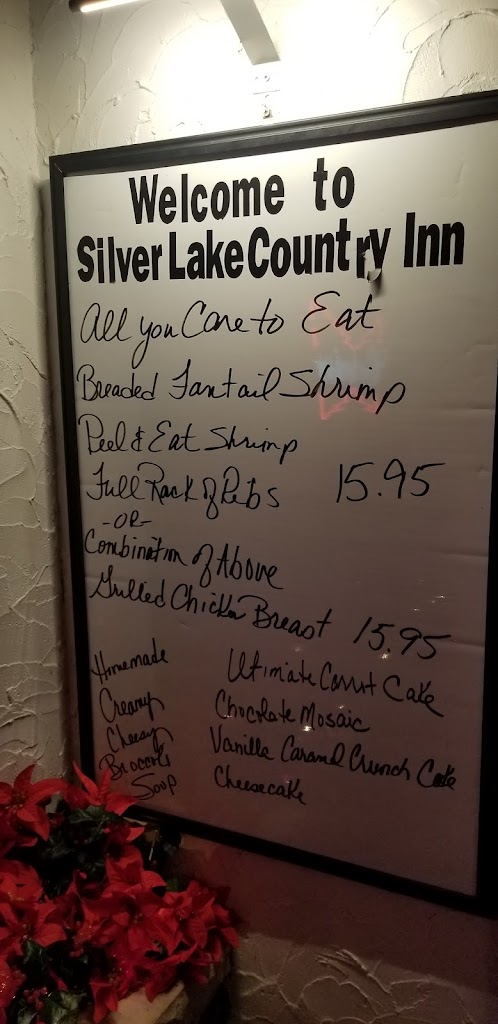 Welcome to
Silver Lake Country Inn
All you Care to Eat
Breaded Fantail Shrimp
Peel & Eat Shrimp
Full Rack of Ribs 15.95
-OR-
Combination of Above
Grilled Chicken Breast 15.95
Homemade
Creamy
Cheesy
Broccoli
Soup
Ultimate Carrot Cake
Chocolate Mosaic
Vanilla Caramel Crunch Cake
Cheesecake